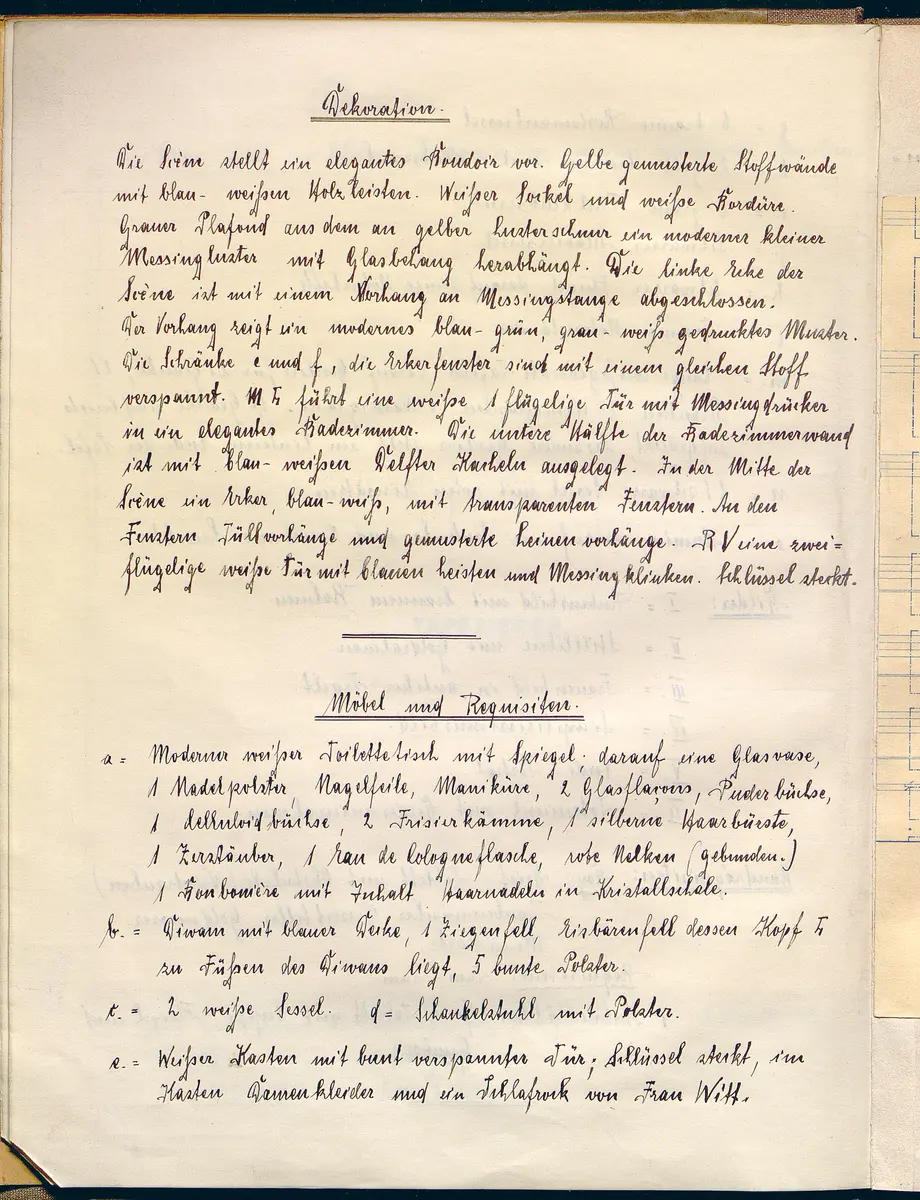 Dekoration.
Die Scène stellt ein elegantes Boudoir vor. Gelbe gemusterte Stoffwände
mit blau-weißen Holzleisten. Weißer Sockel und weiße Bordüre.
Grauer Plafond aus dem an gelber Lusterschnur ein moderner kleiner
Messingluster mit Glasbehang herabhängt. Die linke Ecke der
Scène ist mit einem Vorhang an Messingstange abgeschlossen.
Der Vorhang zeigt ein modernes blau-grün, grau-weiß gedrucktes Muster.
Die Schränke e und f, die Erkerfenster sind mit einem gleichen Stoff
verspannt. M L führt eine weiße 1 flügelige Tür mit Messingdrücker
in ein elegantes Badezimmer. Die untere Hälfte der Badezimmerwand
ist mit blau-weißen Delfter Kacheln ausgelegt. In der Mitte der
Scène ein Erker, blau-weiß, mit transparenten Fenstern. An den
Fenstern Tüllvorhänge und gemusterte Leinenvorhänge. R V eine zwei=
flügelige weiße Tür mit blauen Leisten und Messingklinken. Schlüssel steckt.
Möbel und Requisiten.
a = Moderner weißer Toilettetisch mit Spiegel; darauf eine Glasvase,
1 Nadelpolster, Nagelfeile, Maniküre, 2 Glasflaçons, Puderbüchse,
1 Celluloidbüchse, 2 Frisierkämme, 1 silberne Haarbürste,
1 Zerstäuber, 1 Eau de Cologneflasche, rote Nelken (gebunden.)
1 Bonbonière mit Inhalt Haarnadeln in Kristallschale.
b. = Diwam mit blauer Decke, 1 Ziegenfell, Eisbärenfell dessen Kopf L
zu Füßen des Diwans liegt, 5 bunte Polster.
c. = 2 weiße Sessel. d = Schaukelstuhl mit Polster.
e. = Weißer Kasten mit bunt verspannter Tür; Schlüssel steckt, im
Kasten Damenkleider und ein Schlafrock von Frau Witt.